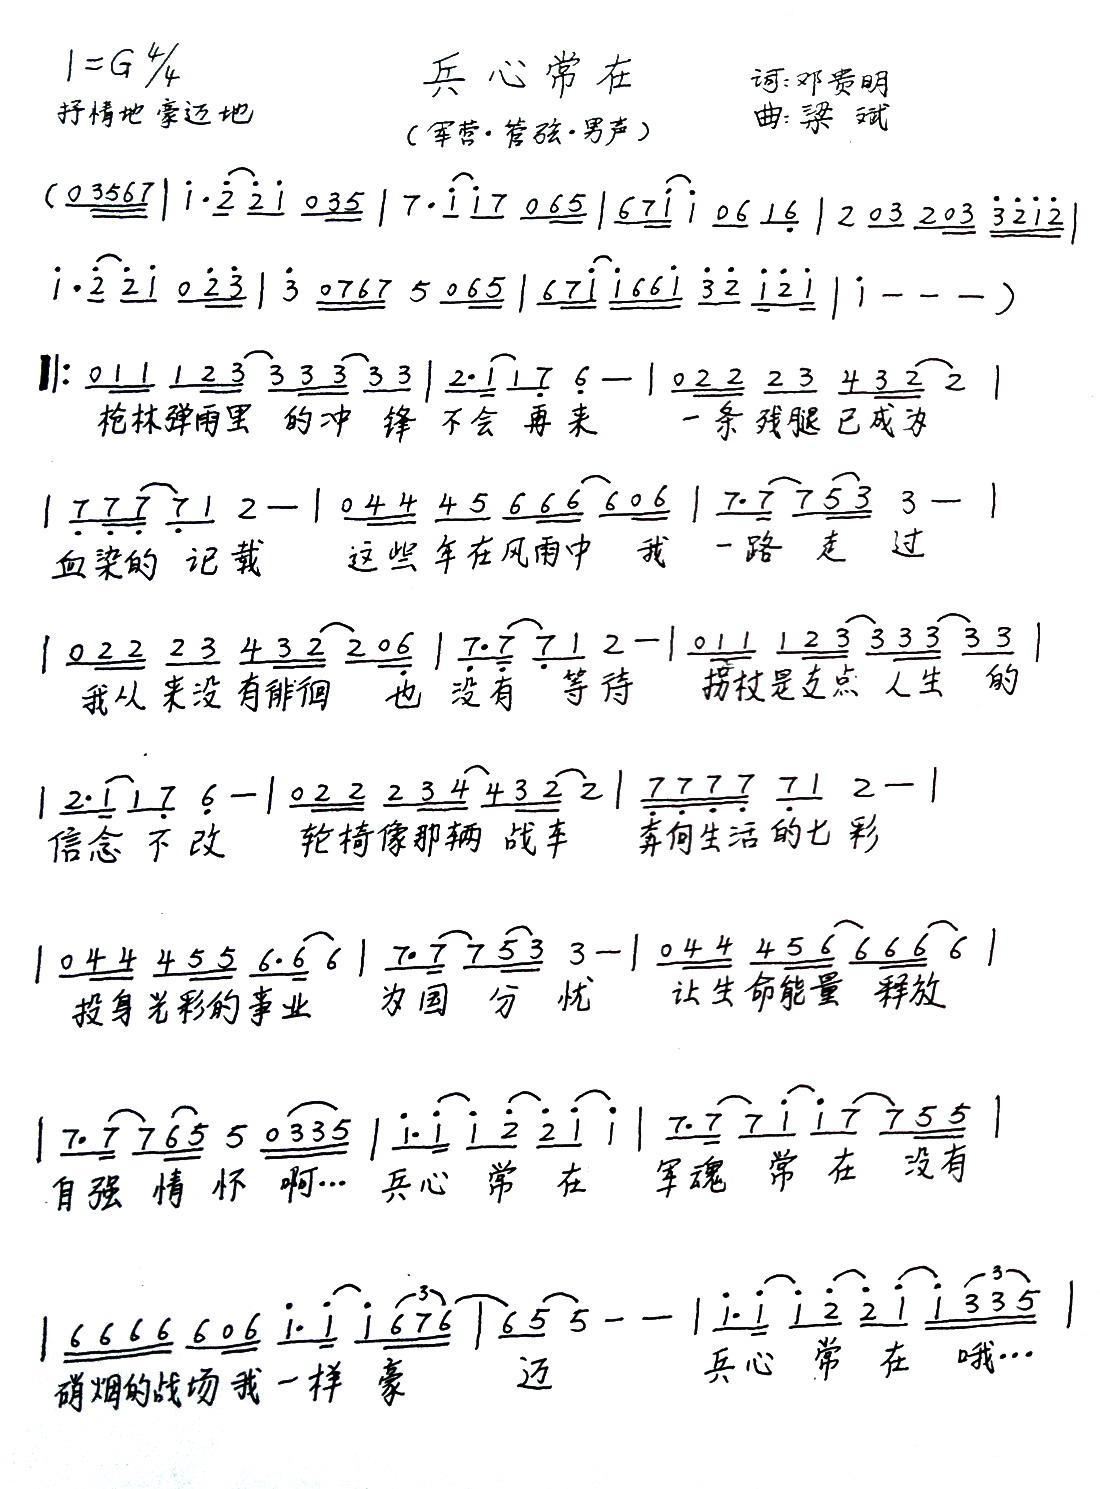 1=G 4/4
兵心常在
词:邓贵明
抒情地 豪迈地
(军营·管弦·男声)
曲:梁斌
(03567|i·2̇2̇i 035|7·ii7 065|67ii 0616̣|2 03 203 3̇2̇i2̇|
i·2̇2̇i 02̇3̇|3̇ 0767 5 065|67ii66i 3̇2̇ i2̇i|i---)
‖:011 123 3333 33|2·117̣ 6̣-|022 23 432 2|
枪林弹雨里 的冲 锋 不会 再来 一条残腿已成为
|7̣7̣7̣ 7̣1 2-|044 45 666 606|7·7 753 3-|
血染的 记载 这些年在风雨中 我 一路 走 过
|022 23 432 206̣|7̣·7̣ 7̣1 2-|011 123 333 33|
我从来没有徘徊 也 没有 等待 拐杖是支点 人生 的
|2·117̣ 6̣-|022 234 432 2|7̣7̣7̣7̣ 7̣1 2-|
信念 不改 轮椅像那辆 战车 奔向生活的七彩
|044 455 6·6 6|7·7 753 3-|044 456 666 6|
投身光彩的事业 为国 分 忧 让生命能量 释放
|7·7 765 5 0335|i·i i2̇ 2̇i i|7·7 7i i7 755|
自强 情怀 啊… 兵心 常 在 军魂 常 在 没有
|6666 606 i·i i676|65 5--|i·i i2̇ 2̇i i335|
硝烟的战场我一样 豪 迈 兵心 常 在 哦…